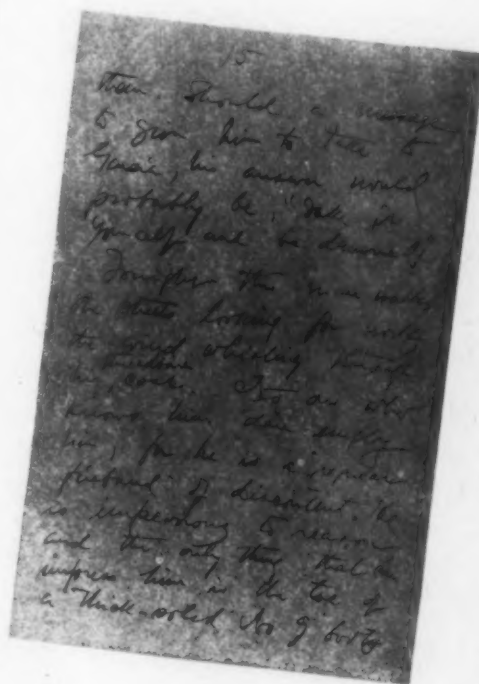 5
Should a message
to take to
Garcia, his answer would
probably be, "Take it
yourself and be damned"!
Tonight this man walks
the streets looking for work
the wind whistling through
threadbare
coat. No one who
knows him dare employ
him, for he is a regular
firebrand of discontent. He
is impervious to reason
and the only thing that can
impress him is the toe of
a thick-soled No 9 boot